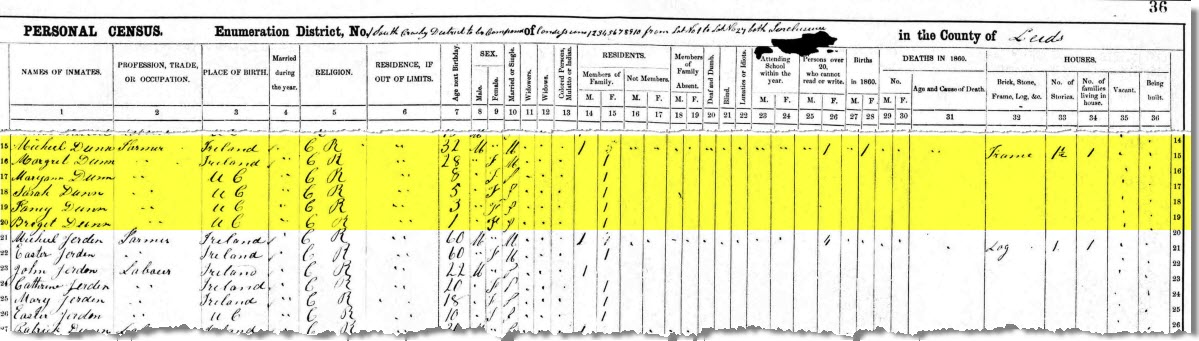 36
PERSONAL CENSUS. Enumeration District, No. 1 South Crosby District to be Composed of Concessions 1 2 3 4 5 6 7 8 9 10 from Lot No 1 to Lot No 27 both Inclusive in the County of Leeds
NAMES OF INMATES. PROFESSION, TRADE, OR OCCUPATION. PLACE OF BIRTH. Married during the year. RELIGION. RESIDENCE, IF OUT OF LIMITS. Age next Birthday. SEX. Male. Female. Married or Single. Widowers. Widows. Colored Persons, Mulatto or Indian. RESIDENTS. Members of Family. Not Members. M. F. M. F. Members of Family Absent. M. F. Deaf and Dumb. Blind. Lunatics or Idiots. Attending School within the year. M. F. Persons over 20, who cannot read or write. M. F. Births in 1860. M. F. DEATHS IN 1860. No. M. F. Age and Cause of Death. HOUSES. Brick, Stone, Frame, Log, &c. No. of Stories. No. of families living in house. Vacant. Being built.
1 2 3 4 5 6 7 8 9 10 11 12 13 14 15 16 17 18 19 20 21 22 23 24 25 26 27 28 29 30 31 32 33 34 35 36
14
15 Michiel Dunn Farmer Ireland " C R " " 32 M M 1 1 1 Frame 1½ 1 15
16 Margret Dunn Ireland " C R " " 28 F M 1 16
17 Maryann Dunn U C " C R " " 8 F S 1 17
18 Sarah Dunn U C " C R " " 5 F S 1 18
19 Fancy Dunn U C " C R " " 3 F S 1 19
20 Briget Dunn U C " C R " " 1 F S 1
21 Michiel Jorden Farmer Ireland " C R " " 60 M M 1 Log 1 1 21
22 Easter Jorden Ireland " C R " " 60 F M 1 22
23 John Jorden Labour Ireland " C R " " 22 M S 1 23
24 Catherine Jorden Ireland " C R " " 20 F S 1 24
25 Mary Jorden Ireland " C R " " 18 F S 1 25
26 Easter Jorden U C " C R " " 10 F S 1 26
27 Patrick Dunn